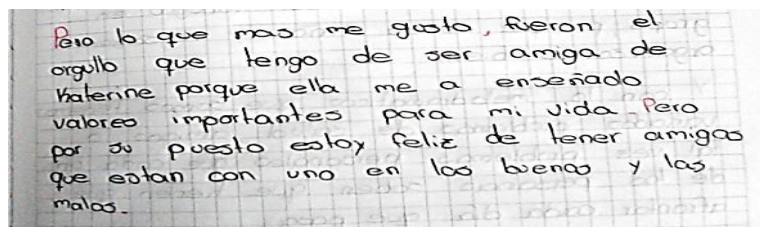 Pero lo que mas me gusto, fueron el
orgullo que tengo de ser amiga de
Katerine porque ella me a enseñado
valores importantes para mi vida Pero
por su puesto estoy feliz de tener amigas
que estan con uno en las buenas y las
malas.